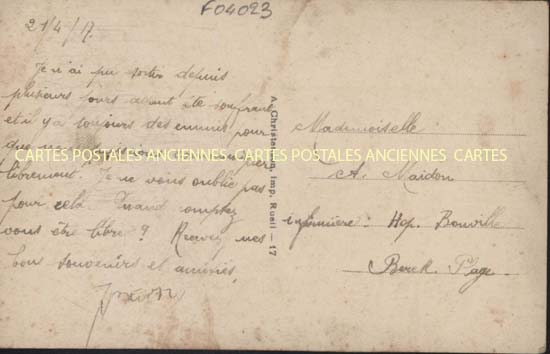 F04023
21/4/17.
Je n'ai pu sortir depuis
plusieurs jours ayant été souffrant
et il y a toujours des ennuis pour
que
librement. Je ne vous oublie pas
pour cela. Quand comptez
vous être libre ? Recevez mes
bons souvenirs et amitiés.
A. Christensen, imp. Rueil — 17
Mademoiselle
A. Maidon
infirmière. Hop. Bouville
Berck. Plage.
CARTES POSTALES ANCIENNES CARTES POSTALES ANCIENNES CARTES